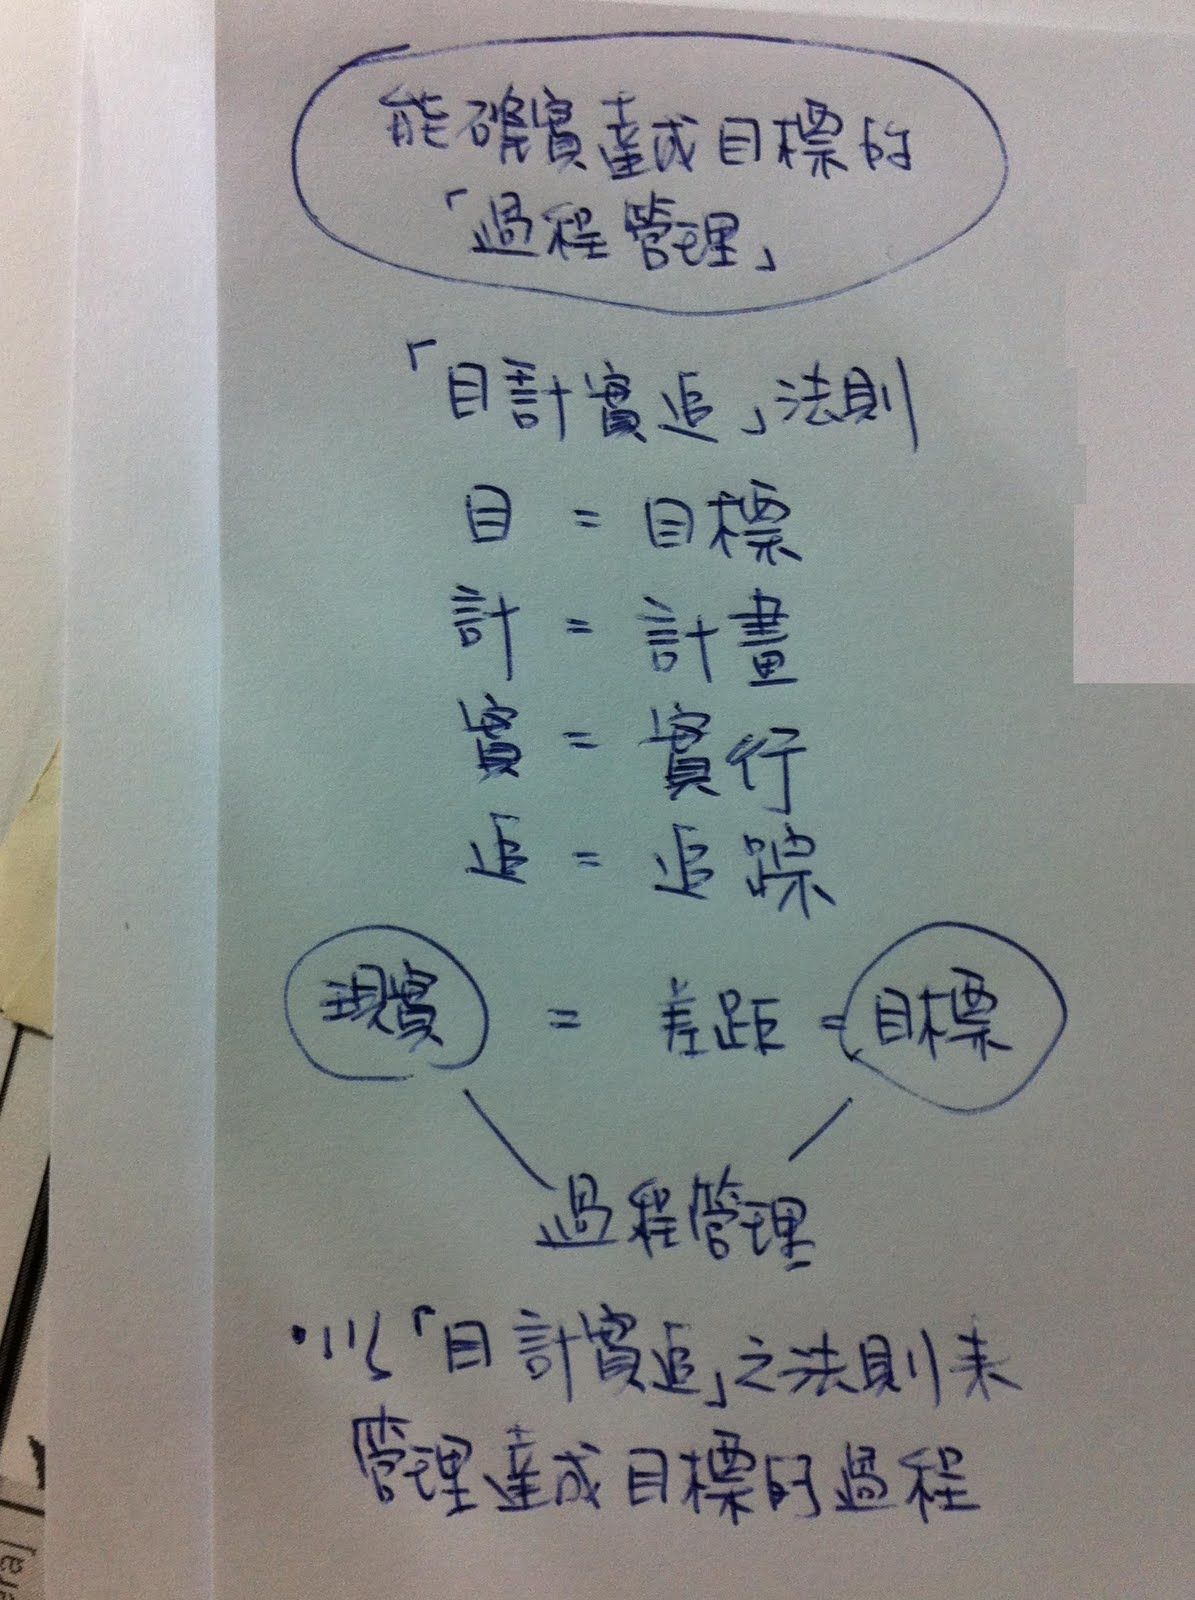 能確實達成目標的
「過程管理」
「目計實追」法則
目 = 目標
計 = 計畫
實 = 實行
追 = 追踪
現實 = 差距 = 目標
過程管理
·以「目計實追」之法則來
管理達成目標的過程